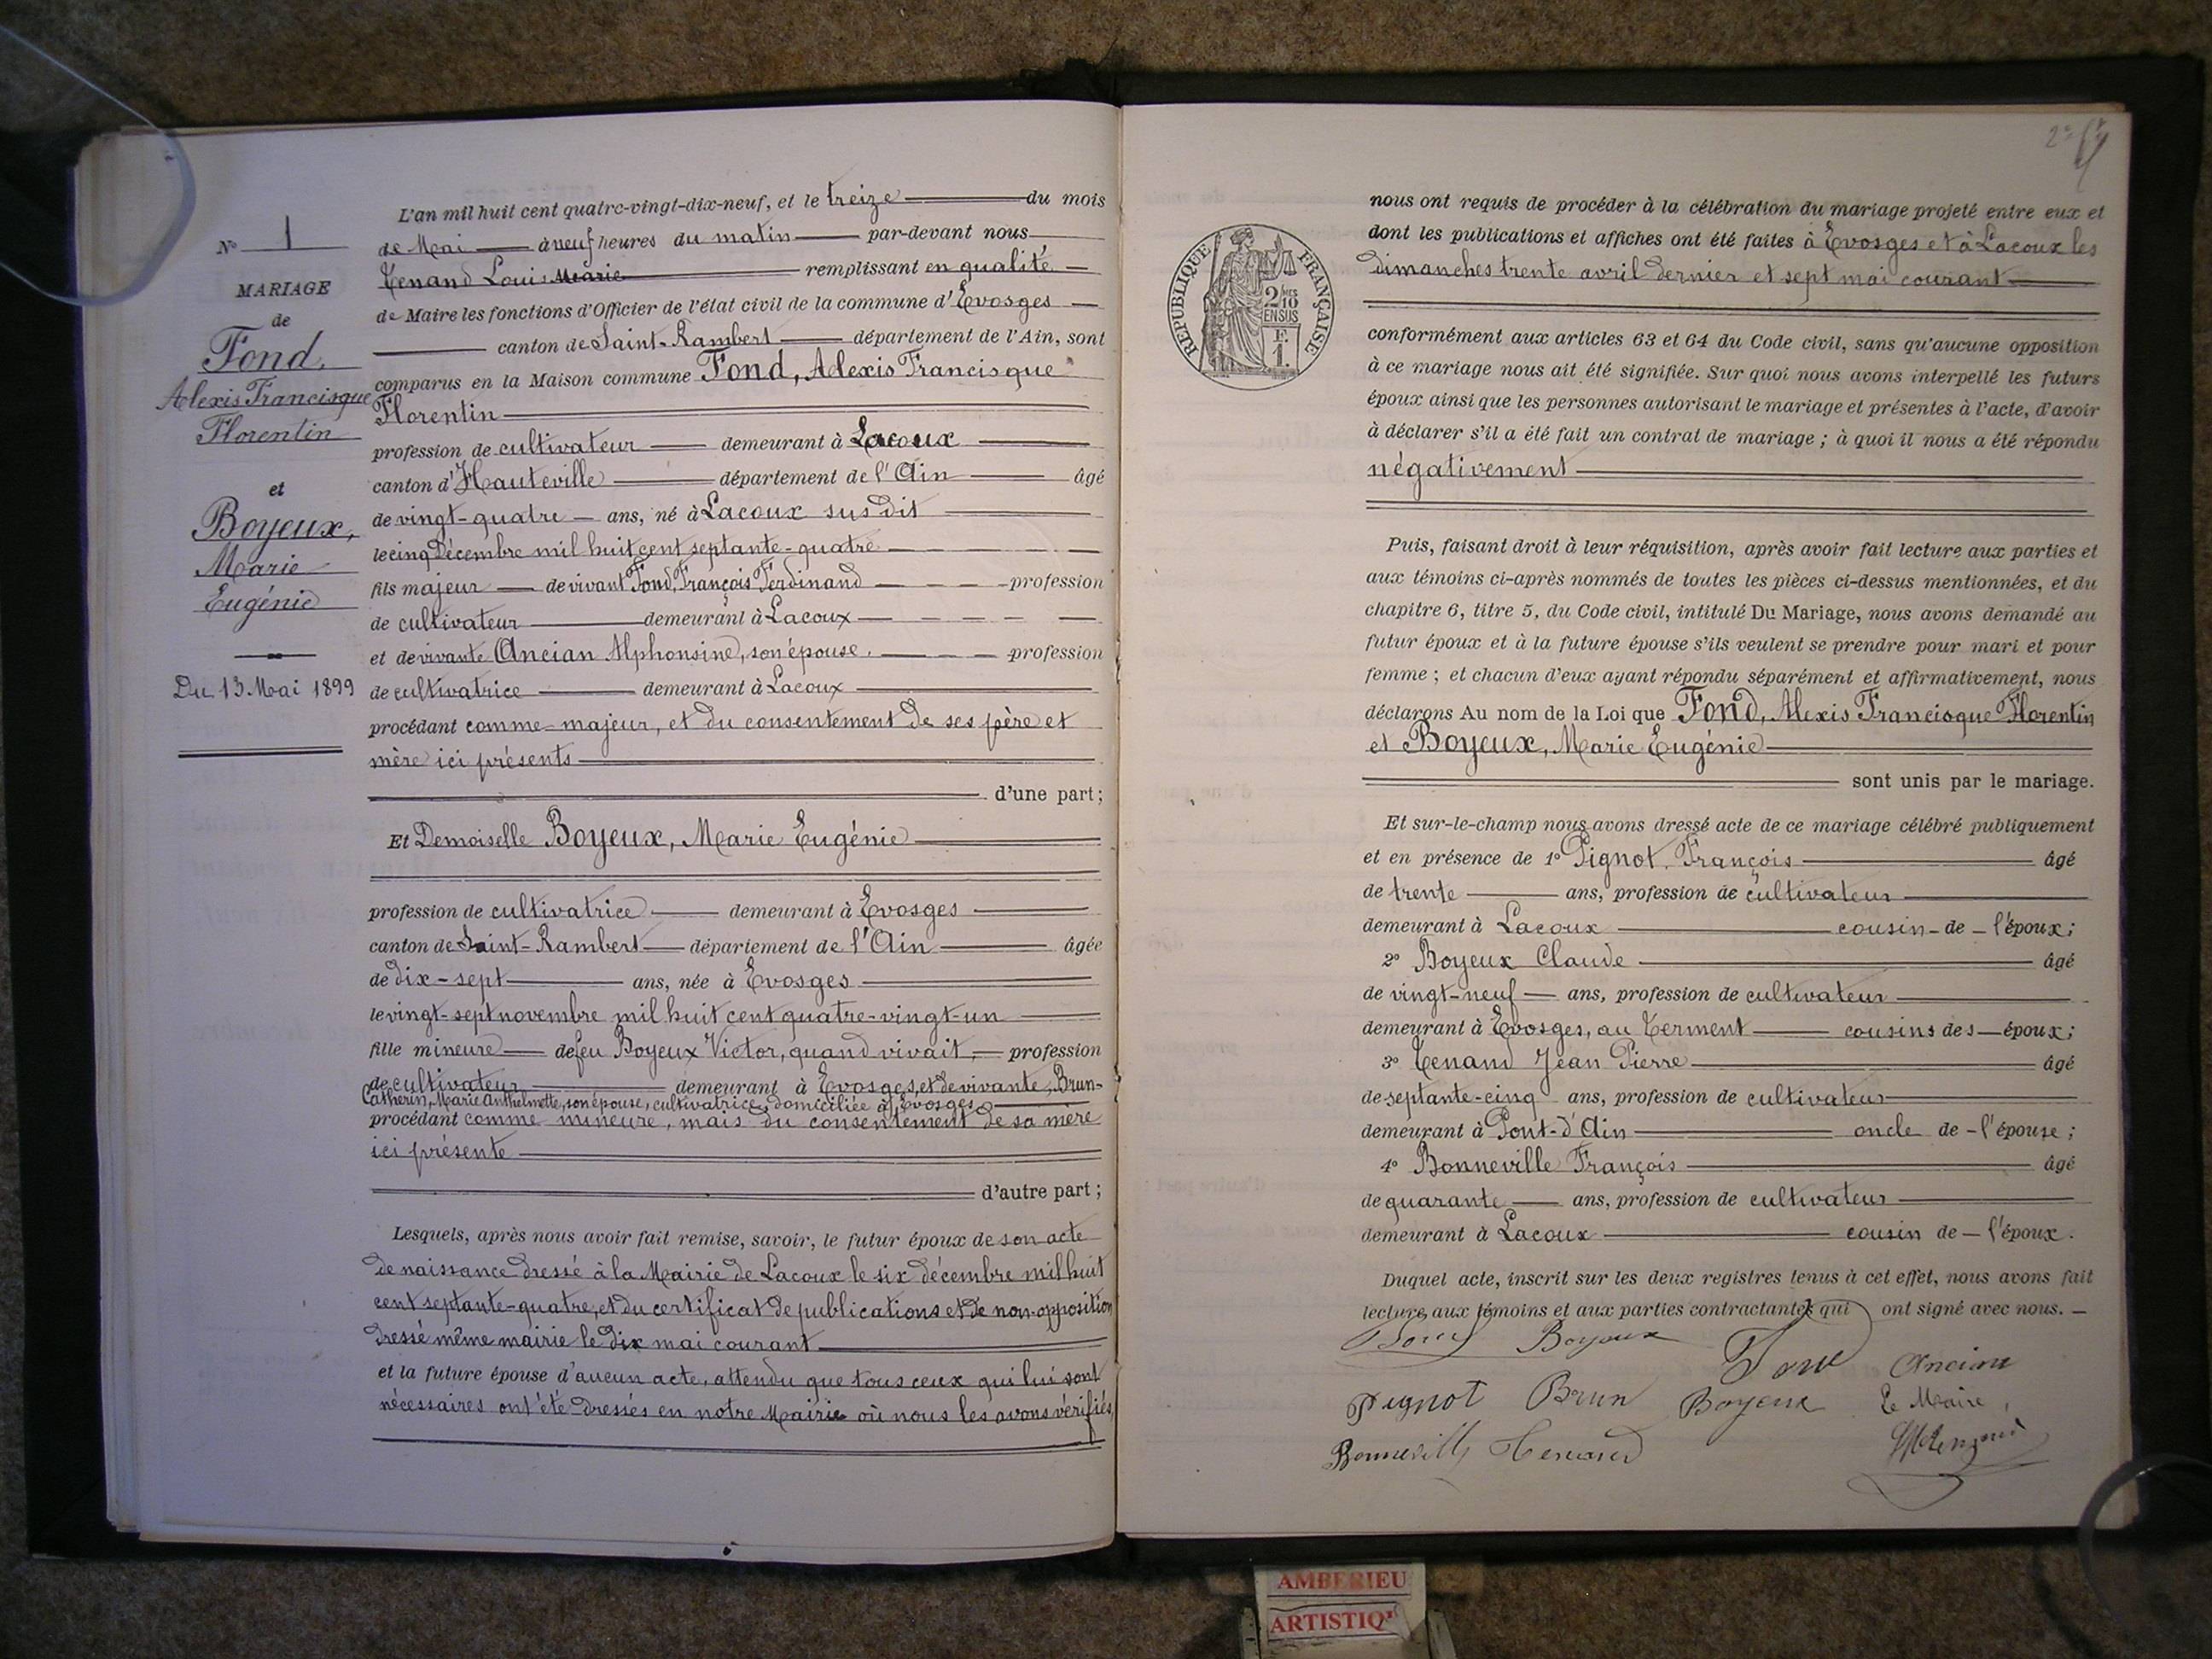 N° 1
MARIAGE
de
Fond,
Alexis Francisque
Florentin
et
Boyeux,
Marie
Eugénie
Du 13 Mai 1899
L'an mil huit cent quatre-vingt-dix-neuf, et le treize du mois
de Mai à neuf heures du matin par-devant nous
Tenand Louis Marie remplissant en qualité
de Maire les fonctions d'Officier de l'état civil de la commune d'Evosges
canton de Saint-Rambert département de l'Ain, sont
comparus en la Maison commune Fond, Alexis Francisque
Florentin
profession de cultivateur demeurant à Lacoux
canton d'Hauteville département de l'Ain âgé
de vingt-quatre ans, né à Lacoux susdit
le cinq Décembre mil huit cent septante-quatre
fils majeur de vivant Fond, François Ferdinand profession
de cultivateur demeurant à Lacoux
et de vivante Ancian Alphonsine, son épouse. profession
de cultivatrice demeurant à Lacoux
procédant comme majeur, et du consentement de ses père et
mère ici présents
d'une part;
Et Demoiselle Boyeux, Marie Eugénie
profession de cultivatrice demeurant à Evosges
canton de Saint-Rambert département de l'Ain âgée
de dix-sept ans, née à Evosges
le vingt-sept novembre mil huit cent quatre-vingt-un
fille mineure de feu Boyeux Victor, quand vivait, profession
de cultivateur demeurant à Evosges, et de vivante, Brun-
Catherin, Marie Anthelmette, son épouse, cultivatrice domiciliée à Evosges
procédant comme mineure, mais du consentement de sa mère
ici présente
d'autre part;
Lesquels, après nous avoir fait remise, savoir, le futur époux de son acte
de naissance dressé à la Mairie de Lacoux le six décembre mil huit
cent septante-quatre, et du certificat de publications et de non-opposition
dressé même mairie le dix mai courant
et la future épouse d'aucun acte, attendu que tous ceux qui lui sont
nécessaires ont été dressés en notre Mairie où nous les avons vérifiés,
RÉPUBLIQUE FRANÇAISE
2/10
EN SUS
1 F.
nous ont requis de procéder à la célébration du mariage projeté entre eux et
dont les publications et affiches ont été faites à Evosges et à Lacoux les
dimanches trente avril dernier et sept mai courant
conformément aux articles 63 et 64 du Code civil, sans qu'aucune opposition
à ce mariage nous ait été signifiée. Sur quoi nous avons interpellé les futurs
époux ainsi que les personnes autorisant le mariage et présentes à l'acte, d'avoir
à déclarer s'il a été fait un contrat de mariage; à quoi il nous a été répondu
négativement
Puis, faisant droit à leur réquisition, après avoir fait lecture aux parties et
aux témoins ci-après nommés de toutes les pièces ci-dessus mentionnées, et du
chapitre 6, titre 5, du Code civil, intitulé Du Mariage, nous avons demandé au
futur époux et à la future épouse s'ils veulent se prendre pour mari et pour
femme; et chacun d'eux ayant répondu séparément et affirmativement, nous
déclarons Au nom de la Loi que Fond, Alexis Francisque Florentin
et Boyeux, Marie Eugénie
sont unis par le mariage.
Et sur-le-champ nous avons dressé acte de ce mariage célébré publiquement
et en présence de 1° Pignot, François âgé
de trente ans, profession de cultivateur
demeurant à Lacoux cousin de l'époux;
2° Boyeux Claude âgé
de vingt-neuf ans, profession de cultivateur
demeurant à Evosges, au Terment cousins des époux;
3° Tenand Jean Pierre âgé
de septante-cinq ans, profession de cultivateur
demeurant à Pont-d'Ain oncle de l'épouse;
4° Bonneville François âgé
de quarante ans, profession de cultivateur
demeurant à Lacoux cousin de l'époux.
Duquel acte, inscrit sur les deux registres tenus à cet effet, nous avons fait
lecture aux témoins et aux parties contractantes qui ont signé avec nous.
Boyeux
Fond Ancian
Pignot Brun Boyeux Le Maire,
Bonneville Tenand
AMBERIEU
ARTISTIQ